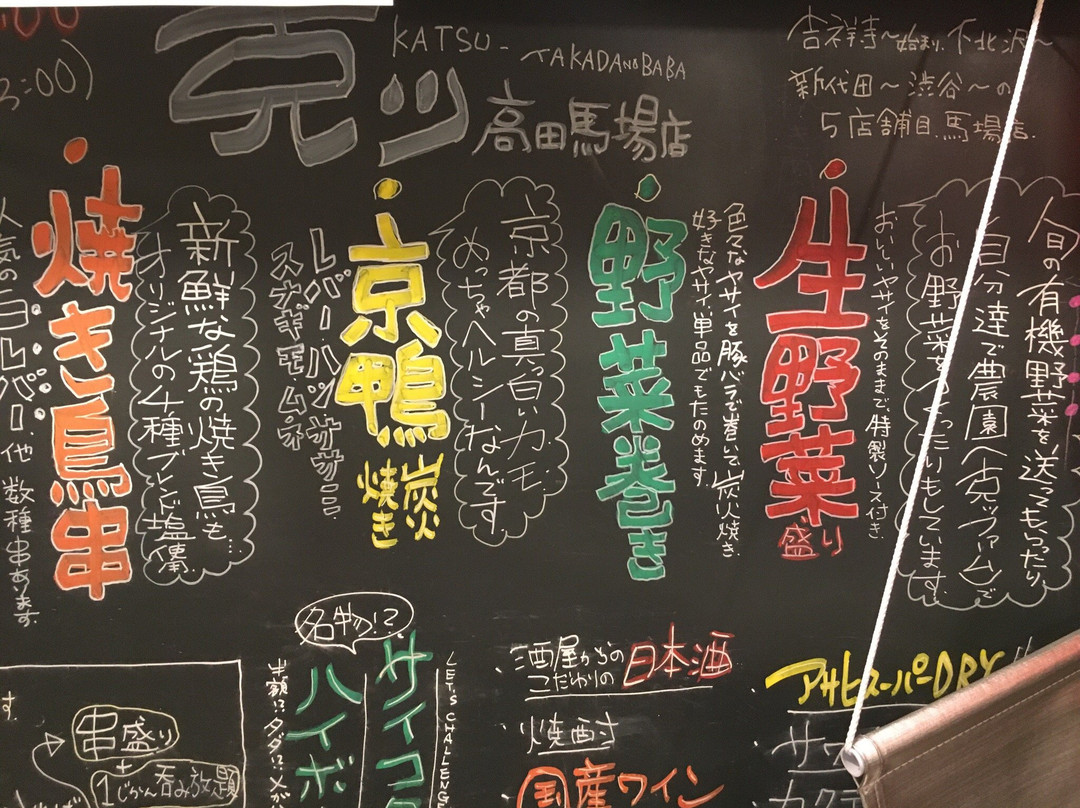 KATSU-
TAKADANOBABA
高田馬場店
吉祥寺〜始まり、下北沢〜
新代田〜渋谷〜の
5店舗目.馬場店.
旬の有機野菜を送ってもらったり
自分達で農園へ
お野菜をつくったりもしています.
おいしいヤサイをそのままで、特製ソース付き.
生野菜
盛り
色々なヤサイを豚バラで巻いて、炭火焼き.
好きなヤサイ、単品でもたのめます.
野菜巻き
京都の真っ白いカモ.
めっちゃヘルシーなんです.
京鴨
炭火
焼き
レバー・ハツ・ササミ
スナギモ・ムネ
新鮮な鶏の焼き鳥も…
オリジナルの4種ブレンド塩
焼き鳥串
人気の白レバー.他
数種串あります.
3:00)
串盛り
+
1じかん呑み放題
名物!?
サイコロ
ハイボ
LET'S CHALLENG
半額!?タダ!?メガ
・酒屋からの
こだわりの
日本酒
・焼酎
国産ワイン
・アサヒスーパーDRY